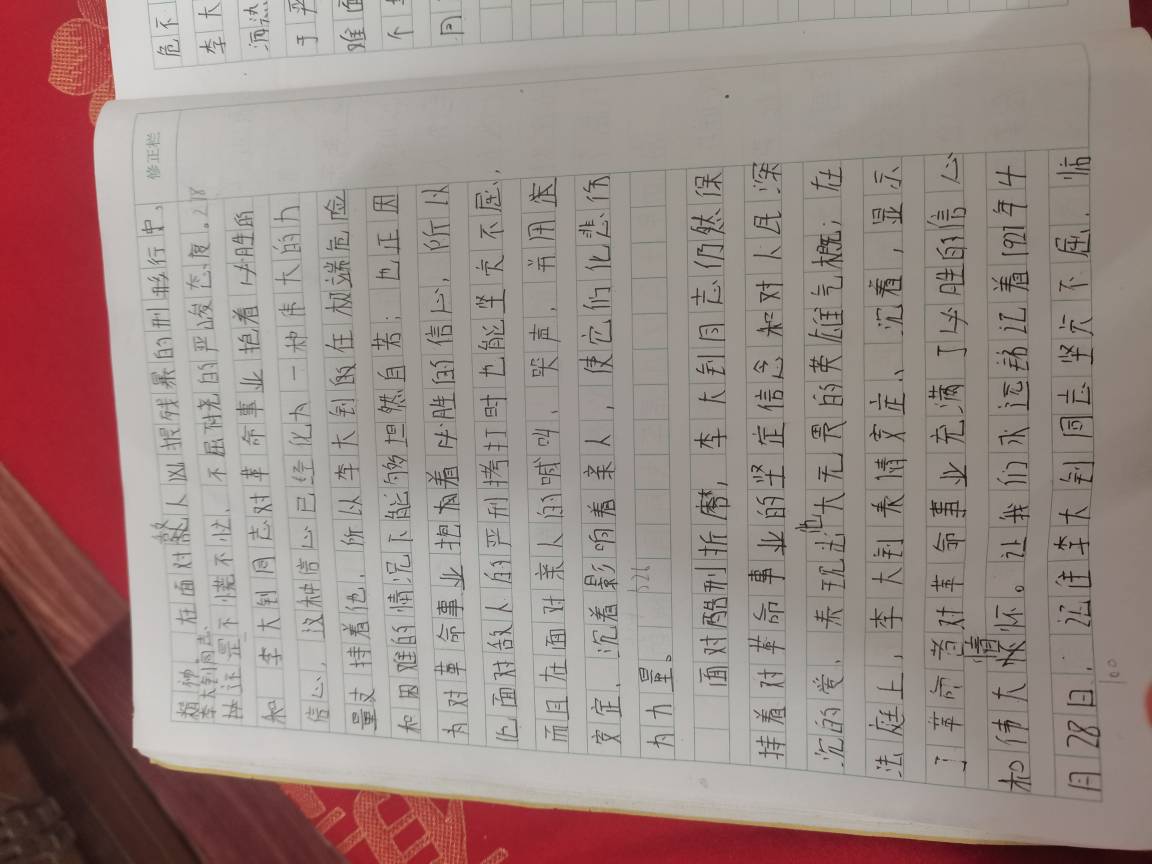 危不
李大
于严
难面
个
回
修正栏
精神。在面对敌人凶狠残暴的刑行中，
李大钊同志
还是不慌不忙、不屈的严峻态度。218
和李大钊同志对革命事业抱着必胜的
信心，这种信心已经化为一种伟大的力
量支持着他，所以李大钊的在极端危险
和困难的情况下能够坦然自若；也正因
为对革命事业抱有着必胜的信心，所以
他面对敌人的严刑拷打时也能坚贞不屈，
而且在面对亲人的喊叫、哭声，并用安
安定、沉着影响着亲人，使它们化悲伤
为力量。 326
面对酷刑折磨，李大钊同志仍然保
持着对革命事业的坚定信念和对人民深
沉的爱、表现出他大无畏的英雄气概；在
法庭上，李大钊表情安定、沉着，显示
了革命者对革命事业充满了必胜的信心
和伟大情怀。让我们永远铭记着1921年4
月28日，记住李大钊同志坚贞不屈、临
100